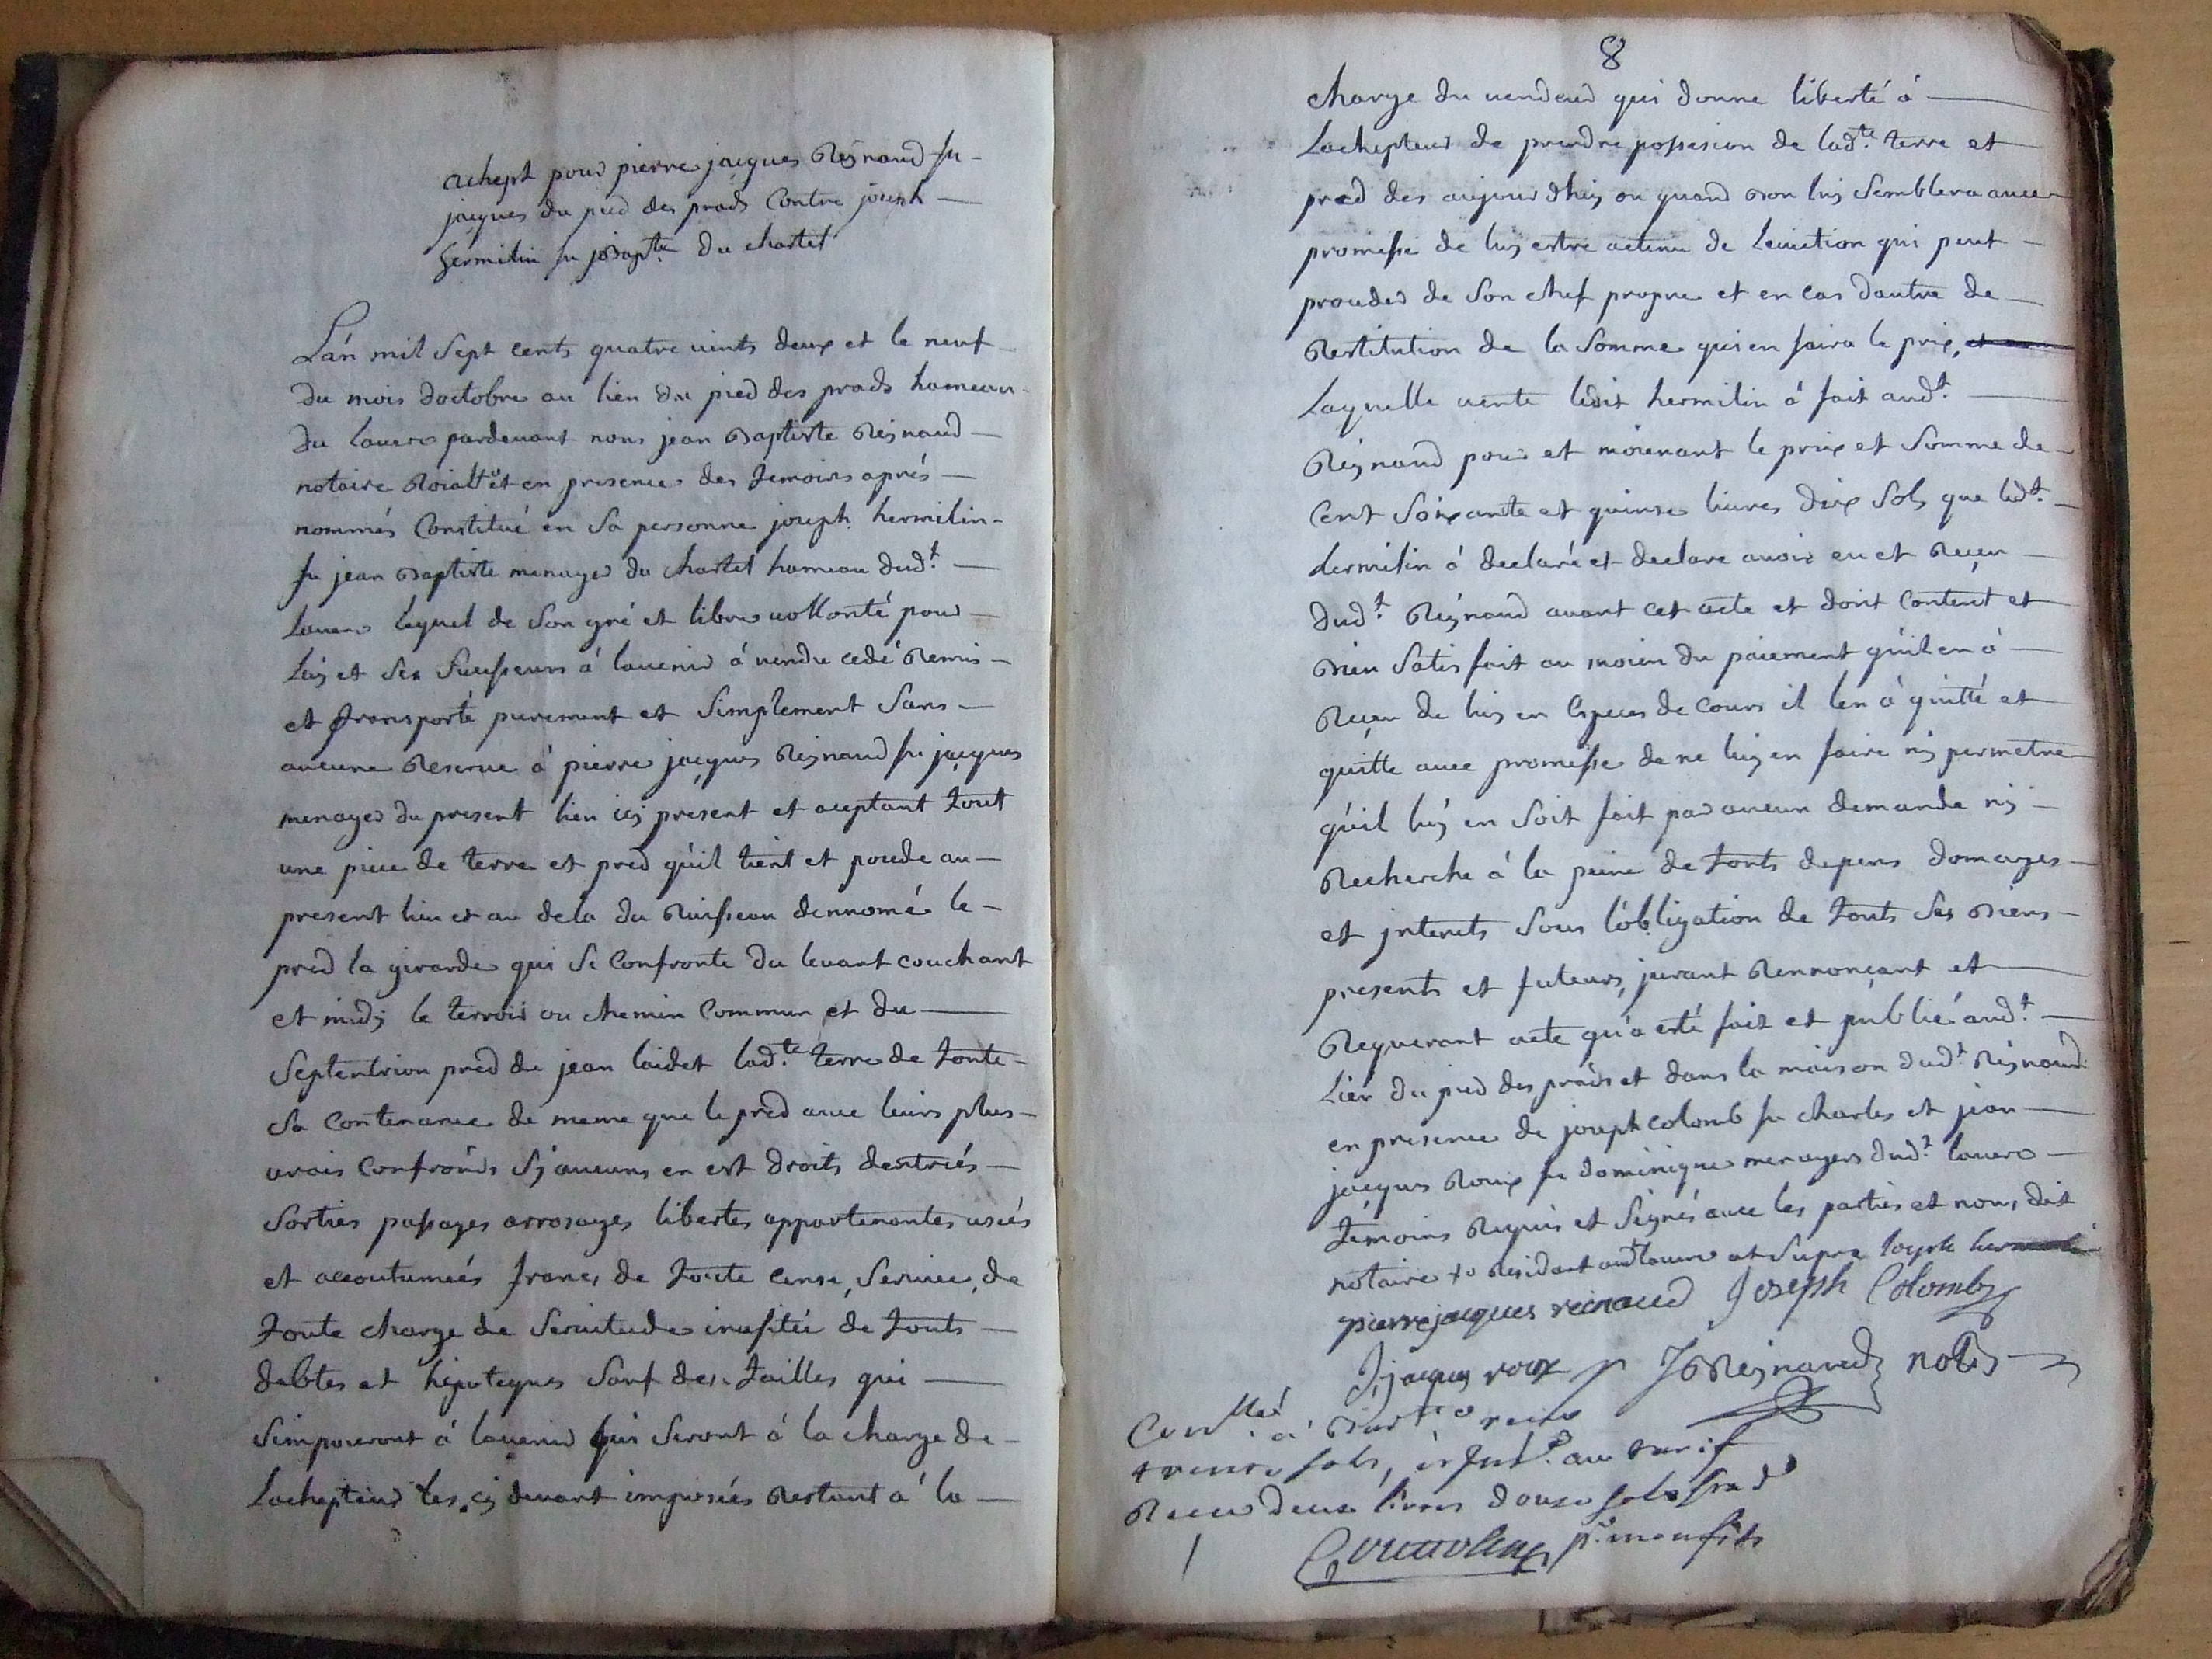 achept pour pierre jacques Reÿnaud fu
jacques du pied des prads Contre joseph
hermilin fu jõbapte du chastel
L'an mil Sept cents quatre uints deux et le neuf
du mois doctobre au lieu du pied des prads hameau
du lauers pardeuant nous jean Baptiste Reÿnaud
notaire Roial et en presence des temoins aprés
nommés Constitué en Sa personne joseph hermilin
fu jean Baptiste menager du chastel hameau dudt.
Lauers lequel de Son gré et libre uollonté pour
Luÿ et Ses Sucesseurs á lauenir á uendu cedé Remis
et transporté purement et Simplement Sans
aucune Reserue á pierre jacques Reÿnaud fu jacques
menager du present lieu icÿ present et aceptant tout
une piece de terre et pred qu'il tient et possede au
present lieu et au dela du Ruisseau dennomé le
pred la girarde qui Se Confronte du leuant couchant
et midÿ le terroir ou chemin Commun et du
Septentrion pred de jean laidet ladte. terre de toute
Sa Contenance de meme que le pred auec leurs plus
urais Confronts Sÿ aucuns en est droits dentrées
Sorties passages arrosages libertes appartenantes usiés
et accoutumées franc, de toute cense, Seruice, de
toute charge de Seruitude inusitée de touts
debtes et hipoteques Sauf des tailles qui
Simposeront á lauenir qui Seront á la charge de
Lachepteur les cÿ deuant imposées Restant á la
8
charge du uendeur qui donne liberté á
Lachepteur de prendre possesion de ladte. terre et
pred des aujourdhuÿ ou quand bon luÿ Semblera auec
promesse de luÿ estre attenu de Leuiction qui peut
proceder de Son chef propre et en cas dautre de
Restitution de la Somme qui en faira le prix,
Laquelle uente ledit hermilin á fait audt.
Reÿnaud pour et moienant le prix et Somme de
Cent Soixante et quinse liures dix Sols que ledt.
hermilin á declaré et declare auoir eu et Reçeu
dudt. Reÿnaud auant cet acte et dont Content et
bien Satisfait au moien du paiement qu'il en á
Reçeu de luÿ en Especes de Cours il len á quitté et
quitte auec promesse de ne luÿ en faire nÿ permetre
qu'il luÿ en Soit fait par aucun demande nÿ
Recherche á la peine de touts depens domages
et jnterets Sous l'obligation de touts Ses Biens
presents et futeurs, jurant Rennonçant et
Requerant acte qu'a esté fait et publié audt.
Lieu du pied des prads et dans la maison dudt. Reÿnaud
en presence de joseph colomb fu charles et jean
jacques Roux fu dominique menagers dudt. lauers
témoins Requis et Signés auec les parties et nous dit
notaire Residant audt lauers at Supra Joseph
pierre jacques reinaud Joseph Colomb
J, jacques roux JBReÿnaud notre
Conllé a
trense sols, au tarif
Receu deux liures douze sols